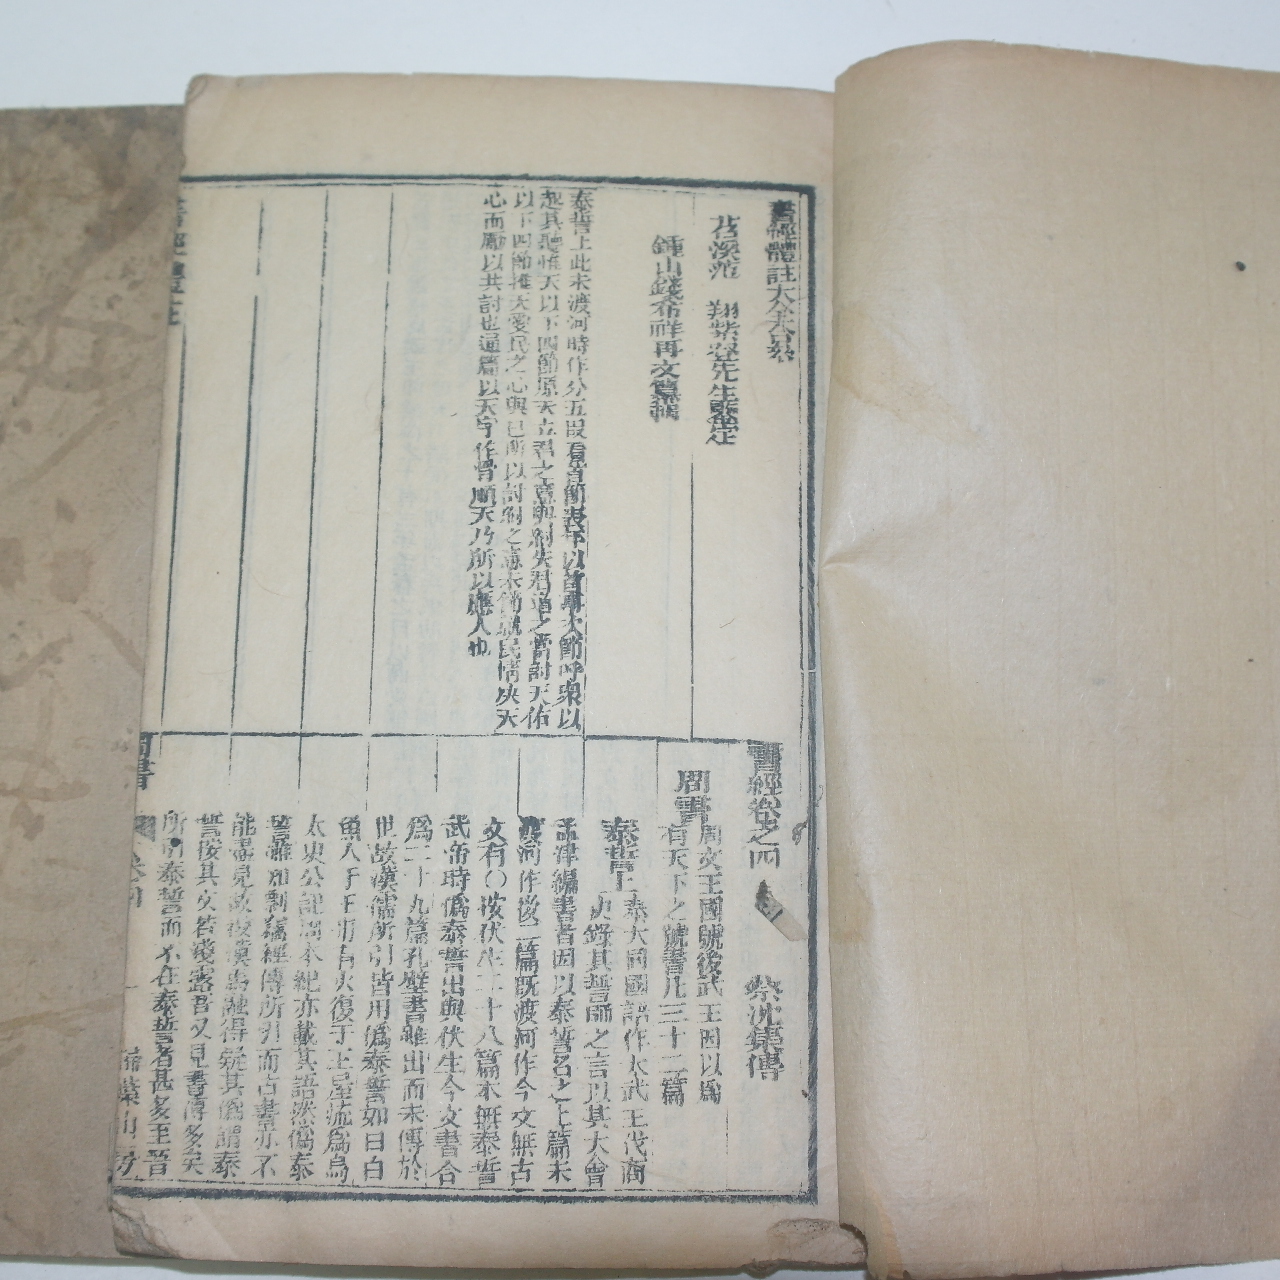 書經體註大全合參
苕溪范　翔紫登先生鑒定
鍾山錢希祥再文纂輯
泰誓上此未渡河時作分五段看首節表年以首事次節呼眾以
起其聽惟天以下四節原天立君之意與紂失君道之當討天佑
以下四節推天愛民之心與己所以討紂之意末節就民情決天
心而勵以共討也通篇以天字作骨順天乃所以應人也
書經卷之四　　蔡沈集傳
周書 周文王國號後武王因以爲
有天下之號書凡三十二篇
泰誓上 泰大同國語作大武王伐商
史錄其誓師之言以其大會
孟津編書者因以泰誓名之上篇未
渡河作後二篇旣渡河作今文無古
文有○按伏生二十八篇本無泰誓
武帝時僞泰誓出與伏生今文書合
爲二十九篇孔壁書雖出而未傳於
世故漢儒所引皆用僞泰誓如曰白
魚入于王舟有火復于王屋流爲烏
太史公記周本紀亦載其語然僞泰
誓雖知剽竊經傳所引而古書亦不
能盡見故後漢馬融得疑其僞謂泰
誓按其文若淺露吾又見書傳多矣
所引泰誓而不在泰誓者甚多至晉
書經體註
周書
卷四
一
掃葉山房